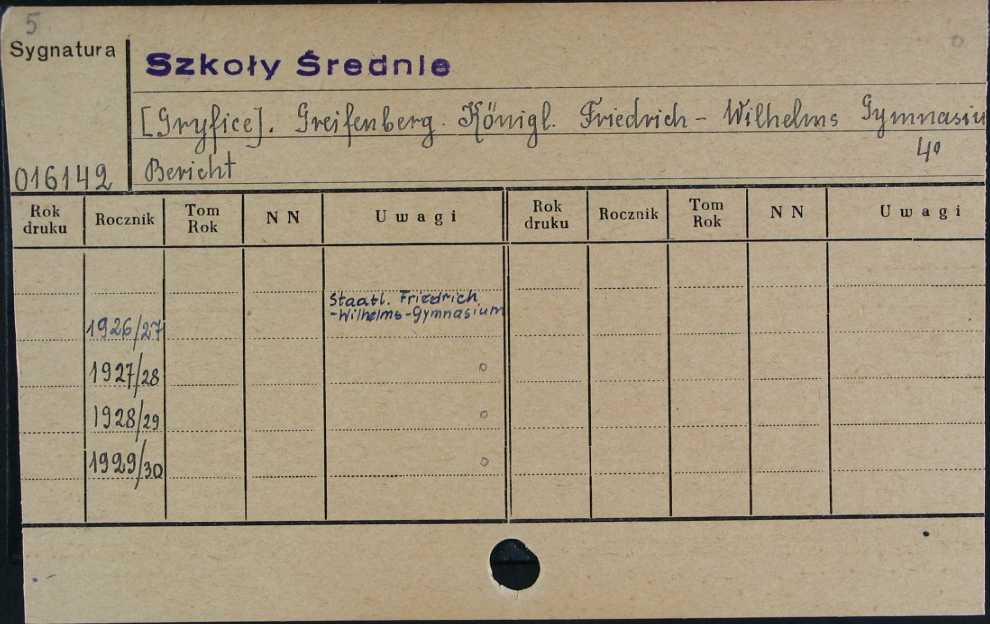 5
Sygnatura
Szkoły Średnie
[Gryfice]. Greifenberg. Königl. Friedrich-Wilhelms Gymnasiu
4°
016142 Bericht
Rok druku Rocznik Tom Rok NN Uwagi Rok druku Rocznik Tom Rok NN Uwagi
Staatl. Friedrich
-Wilhelms-Gymnasium
1926/27
1927/28 o
1928/29 o
1929/30 o